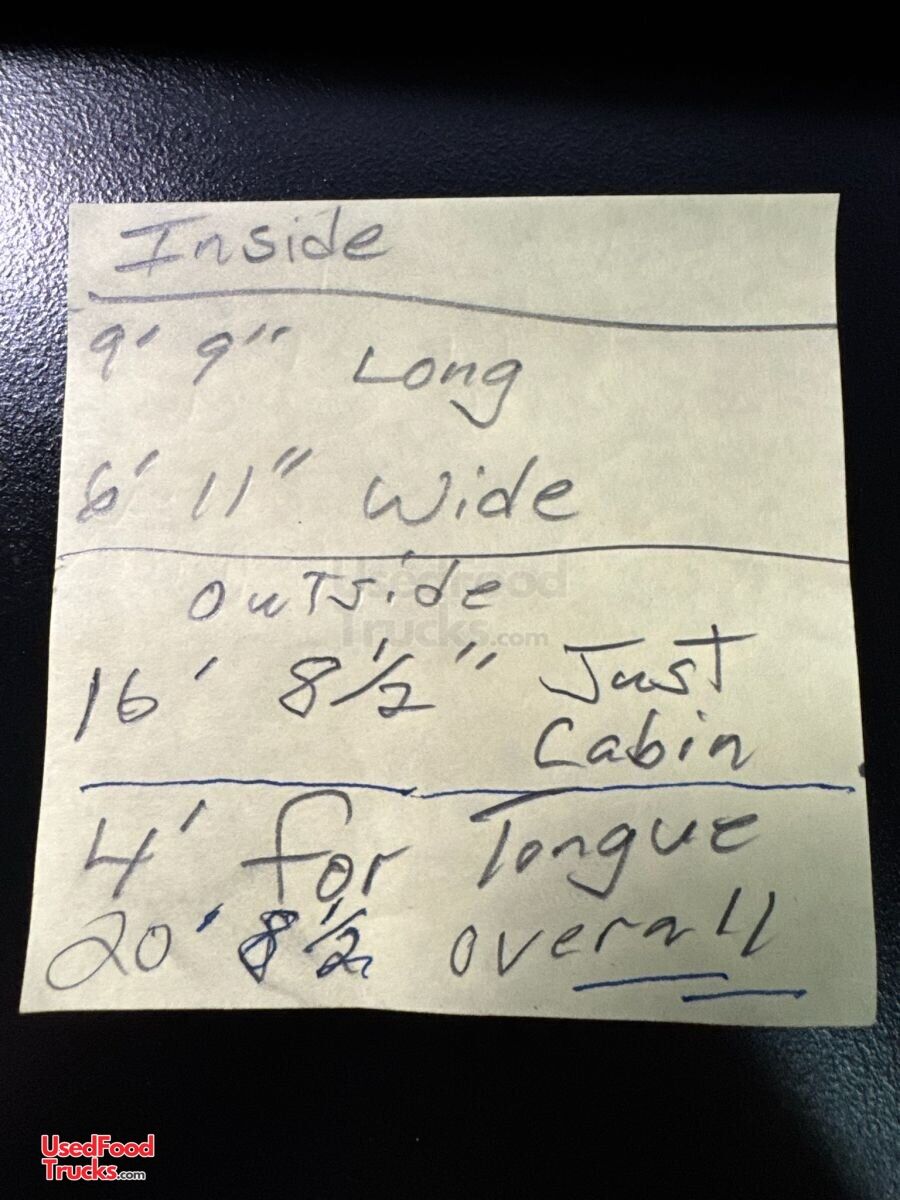 Inside
9' 9" Long
6' 11" Wide
OutSide
UsedFood
Trucks.com
16' 8 1/2" Just
Cabin
4' for Tongue
20' 8 1/2 overall
UsedFood
Trucks.com